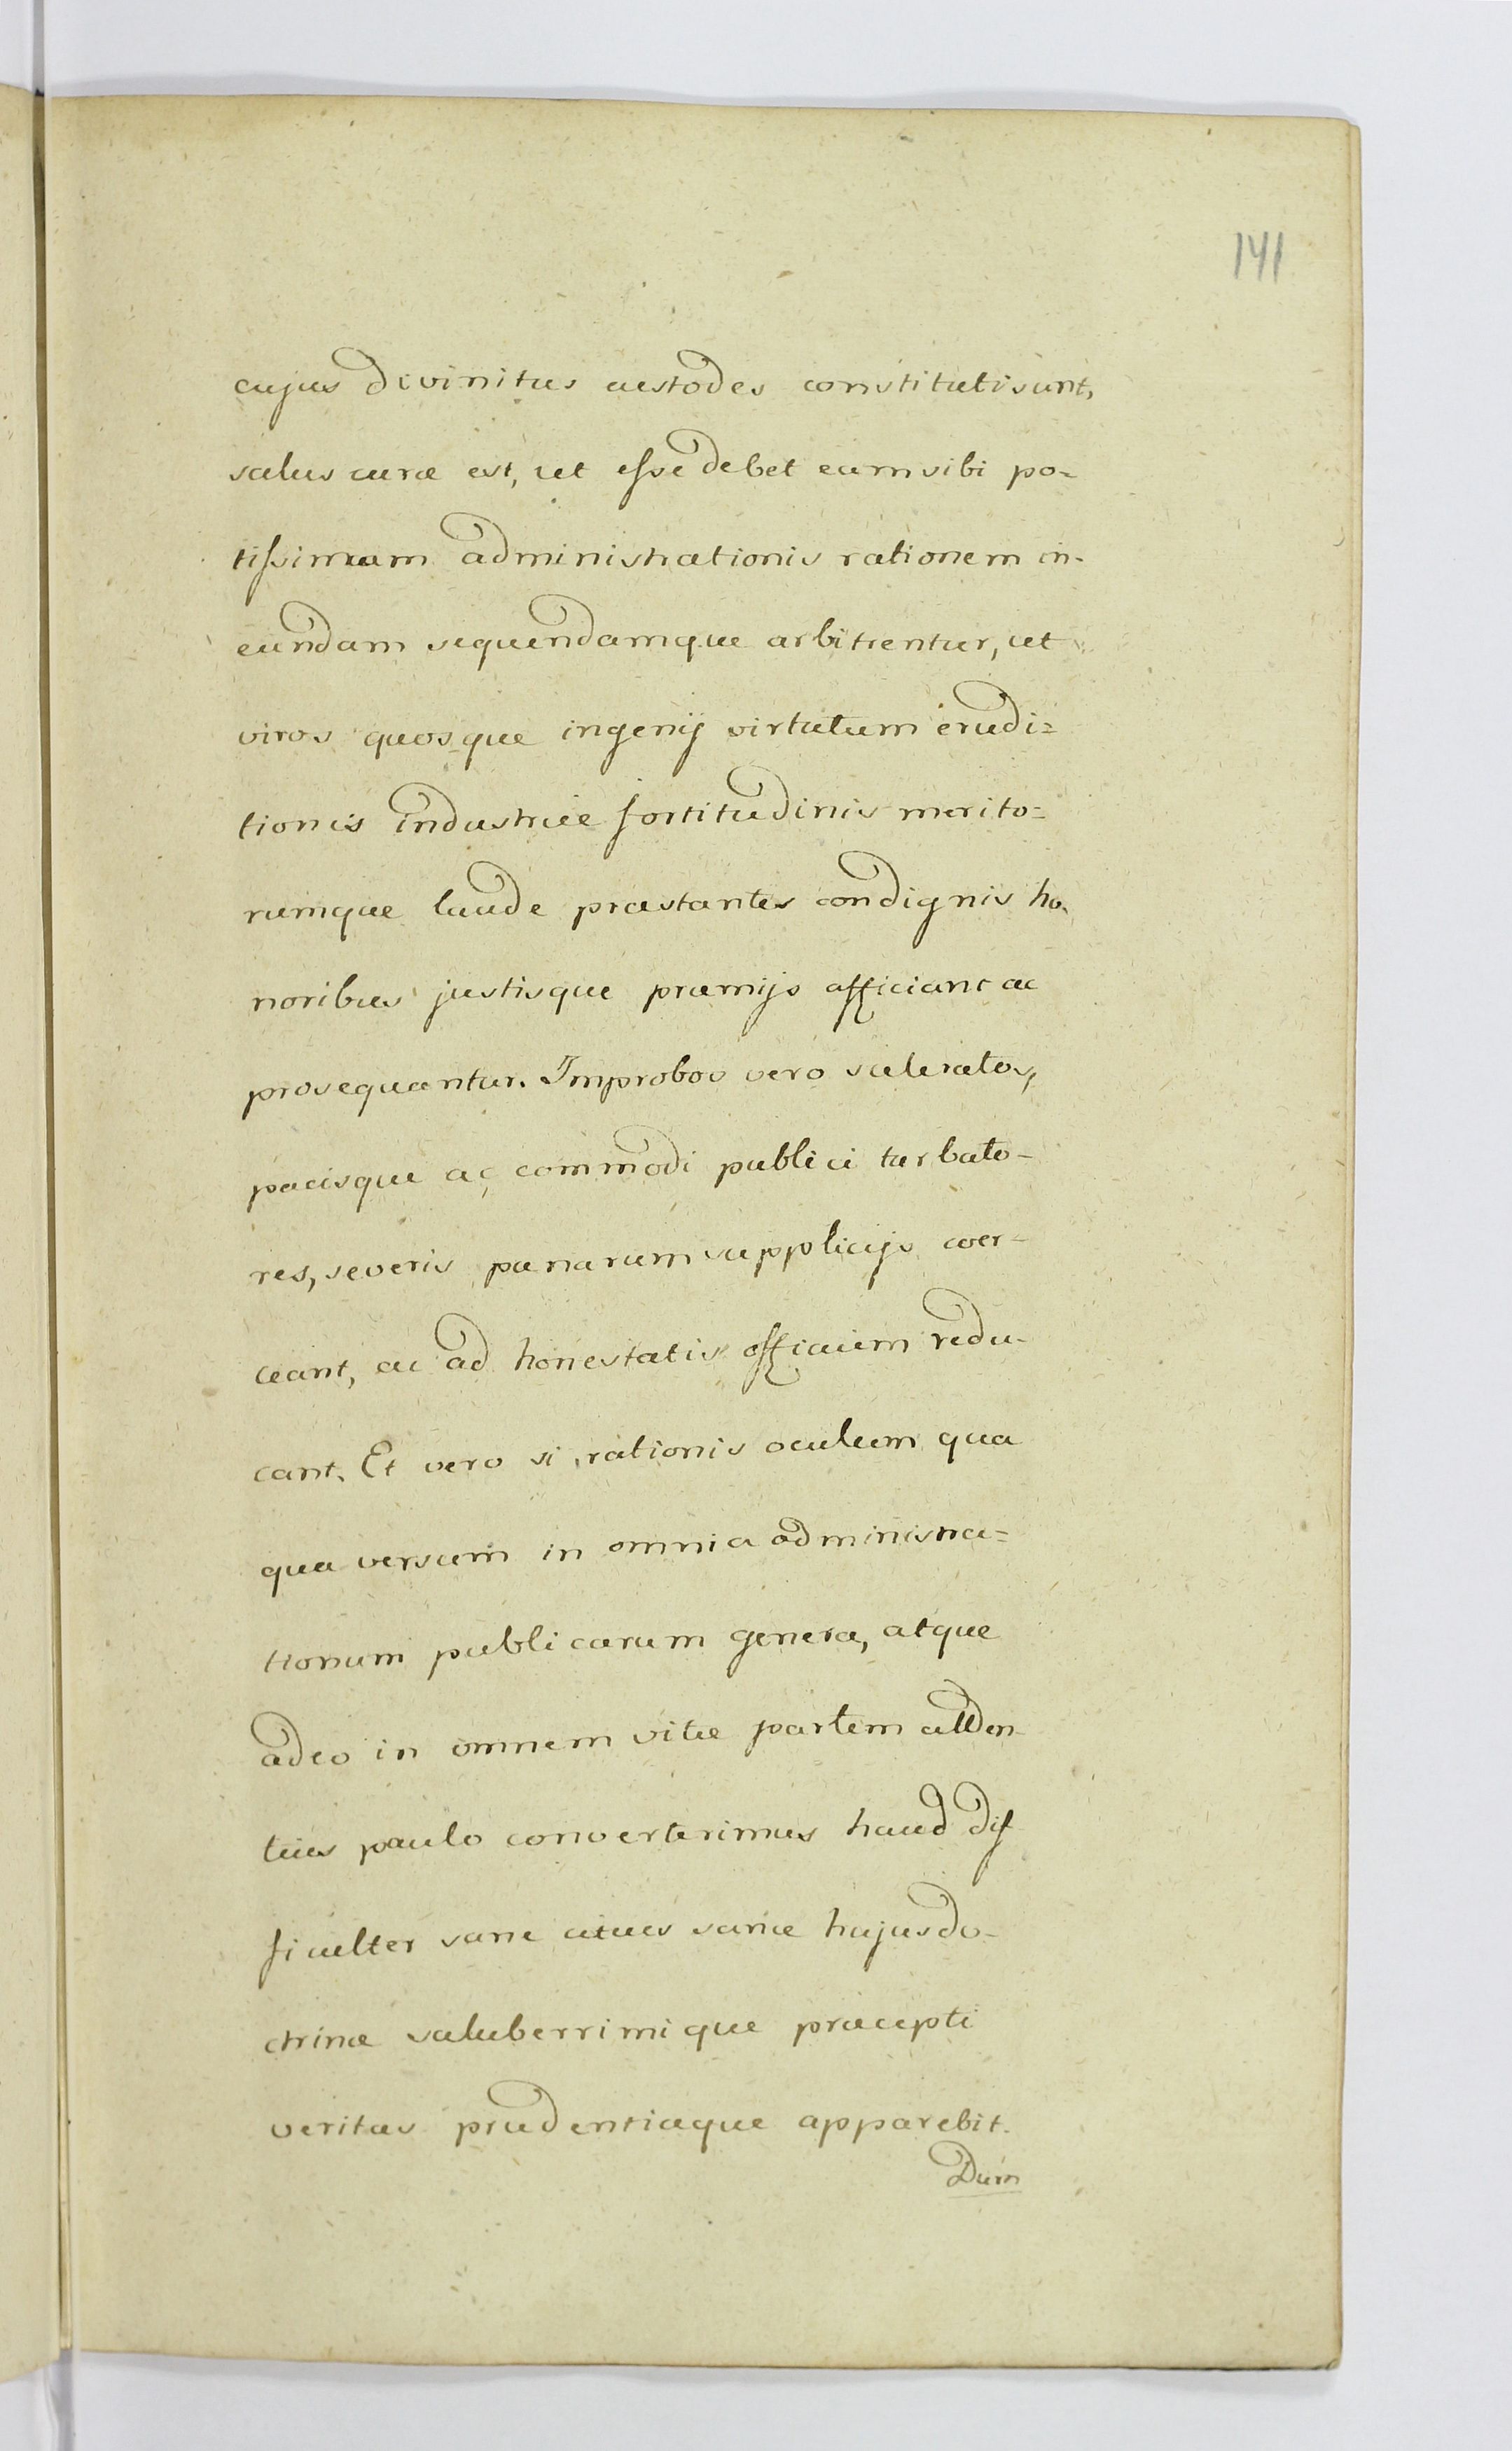 141
cujus divinitus custodes constituti sunt,
salus curæ est, ut esse debet eam sibi po-
tissimam administrationis rationem in-
eundam sequendamque arbitrentur, ut
viros quosque ingenij virtutum erudi=
tionis industriæ fortitudinis merito=
rumque laude præstantes condignis ho-
noribus justisque præmijs afficiant ac
prosequantur. Improbos vero sceleratos,
pacisque ac commodi publici turbato-
res, severis pænarum supplicijs coer-
ceant, ac ad honestatis officium redu-
cant. Et vero si rationis oculum qua
qua versum in omnia administra=
tionum publicarum genera, atque
adeo in omnem vitæ partem atten-
tius paulo converterimus haud dif-
ficulter sane
hujus do-
ctrinæ saluberrimique præcepti
veritas prudentiaque apparebit.
Dum